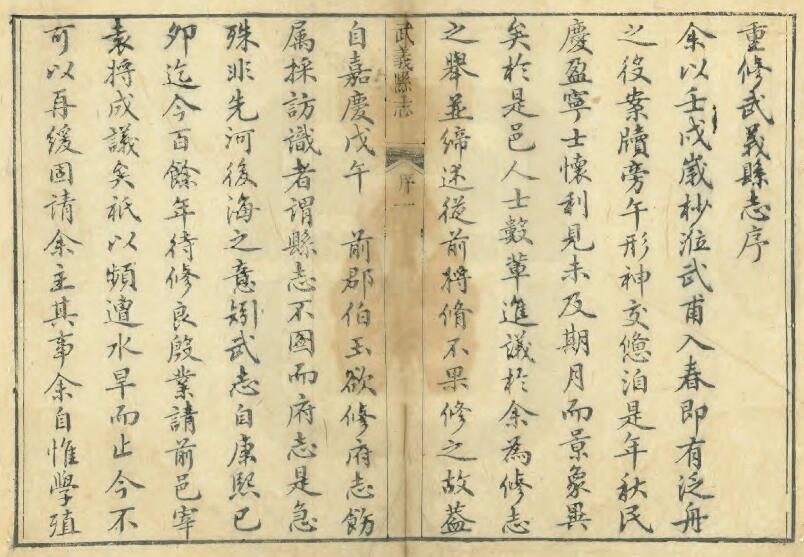 重修武義縣志序
余以壬戌歲杪涖武甫入春即有泛舟
之役案牘旁午形神交憊洎是年秋民
慶盈寧士懷利見未及期月而景象異
矣於是邑人士數輩進議於余為修志
之舉並縷述從前將脩不果修之故蓋
武義縣志
序一
自嘉慶戊午 前郡伯玉欲修府志飭
属採訪識者謂縣志不圖而府志是急
殊非先河後海之意矧武志自康熙已
卯迄今百餘年待修良殷業請前邑宰
袁將成議矣祇以頻遭水旱而止今不
可以再緩固請余主其事余自惟學殖